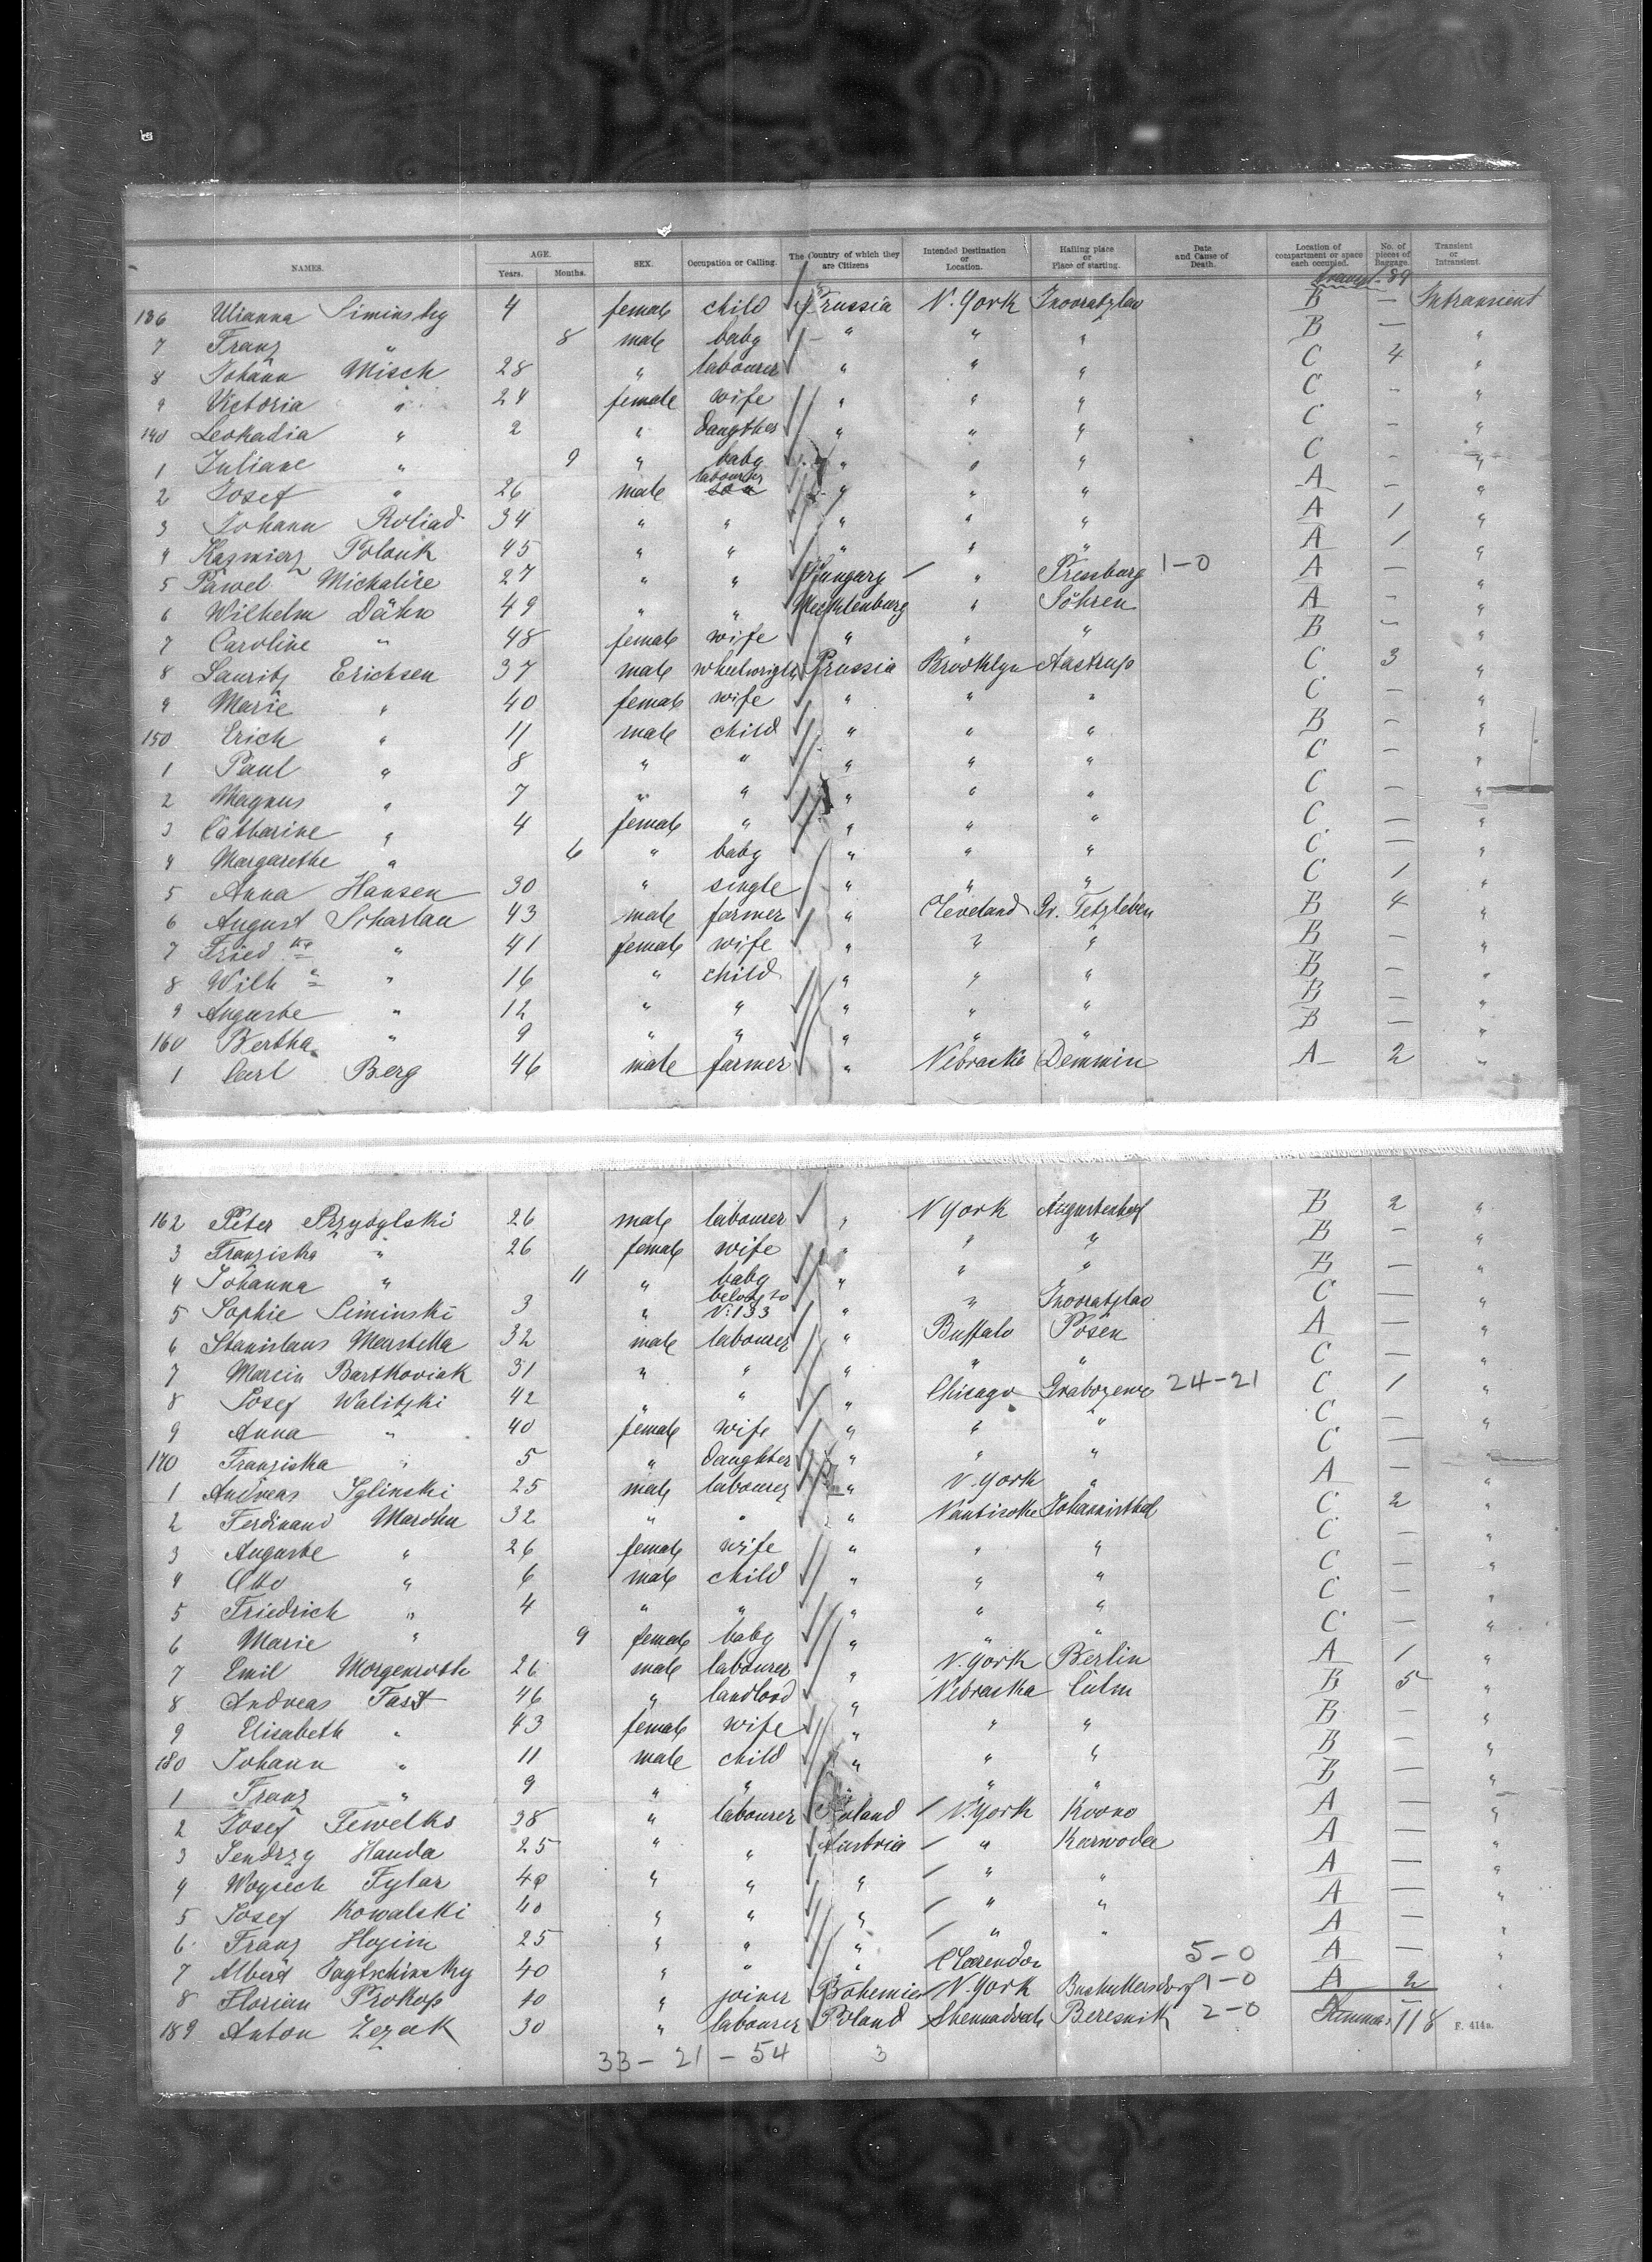 NAMES. AGE. Years. Months. SEX. Occupation or Calling. The Country of which they are Citizens Intended Destination or Location. Hailing place or Place of starting. Date and Cause of Death. Location of compartment or space each occupied. No. of pieces of Baggage. Transient or Intransient.
transpt. 89
136 Ulianna Siminsky 4 female child Prussia N. York Inowratzlav B — Intransient
7 Franz " 8 male baby " " " B — "
8 Johann Misch 28 " labourer " " " C 4 "
9 Victoria " 24 female wife " " " C - "
140 Leokadia " 2 " daugther " " " C - "
1 Juliane " 9 " baby " " " C - "
2 Josef " 26 male labourer " " " A - "
3 Johann Roliad 34 " " " " " A 1 "
4 Kazmierz Polank 45 " " " " " A 1 "
5 Pawel Michalice 27 " " Hungary " Pressburg 1-0 A — "
6 Wilhelm Dähn 49 " " Mecklenburg " Söhren A - "
7 Caroline " 48 female wife " " " B - "
8 Lauritz Erichsen 37 male wheelwright Prussia Brooklyn Aastrup C 3 "
9 Marie " 40 female wife " " " C - "
150 Erich " 11 male child " " " B - "
1 Paul " 8 " " " " " C - "
2 Magnus " 7 " " " " " C - "
3 Catharine " 4 female " " " " C — "
4 Margarethe " 6 " baby " " " C — "
5 Anna Hansen 30 " single " " " C 1 "
6 August Scharlau 43 male farmer " Cleveland Gr. Tetzleben B 4 "
7 Fried ke " 41 female wife " " " B - "
8 Wilh " " 16 " child " " " B - "
9 Auguste " 12 " " " " " B - "
160 Bertha " 9 " " " " " B — "
1 Carl Berg 46 male farmer " Nebraska Demmin A 2 "
162 Peter Przybylski 26 male labourer " N York Augustenhof B 2 "
3 Franziska " 26 female wife " " " B - "
4 Johanna " 11 " baby " " " B — "
5 Sophie Siminski 3 " belong to N: 133 " " Inowratzlav C — "
6 Stanislaus 32 male labourer " Buffalo Posen A — "
7 Marcin Bartkoviak 31 " " " " " C — "
8 Josef Walitzki 42 " " " Chicago 24-21 C 1 "
9 Anna " 40 female wife " " " C — "
170 Franziska " 5 " daughter " " " C — "
1 Andreas Iglinski 25 male labourer " N. York " A — "
2 Ferdinand 32 " " " Nanticoke Johannisthal C 2 "
3 Auguste " 26 female wife " " " C - "
4 Otto " 6 male child " " " C — "
5 Friedrich " 4 " " " " " C — "
6 Marie " 9 female baby " " " C — "
7 Emil Morgenroth 26 male labourer " N. York Berlin A 1 "
8 Andreas Fast 46 " landlord " Nebraska Culm B 5 "
9 Elisabeth " 43 female wife " " " B - "
180 Johann " 11 male child " " " B — "
1 Franz " 9 " " " " " B — "
2 Josef Tewelks 38 " labourer Poland N. York Kovno A — "
3 Jendrzy Handa 25 " " Austria " Karwodea A — "
4 Woyciech Fylar 40 " " " " " A — "
5 Josef Kowalski 40 " " " " " A — "
6 Franz 25 " " " " " A — "
7 Albert 40 " " " Clarendon 5-0 A — "
8 Florian Prokop 40 " joiner Bohemia N. York 1-0 A 2 "
189 Anton Zezak 30 " labourer Poland Beresnik 2-0 118 F. 414a.
33 - 21 - 54 3